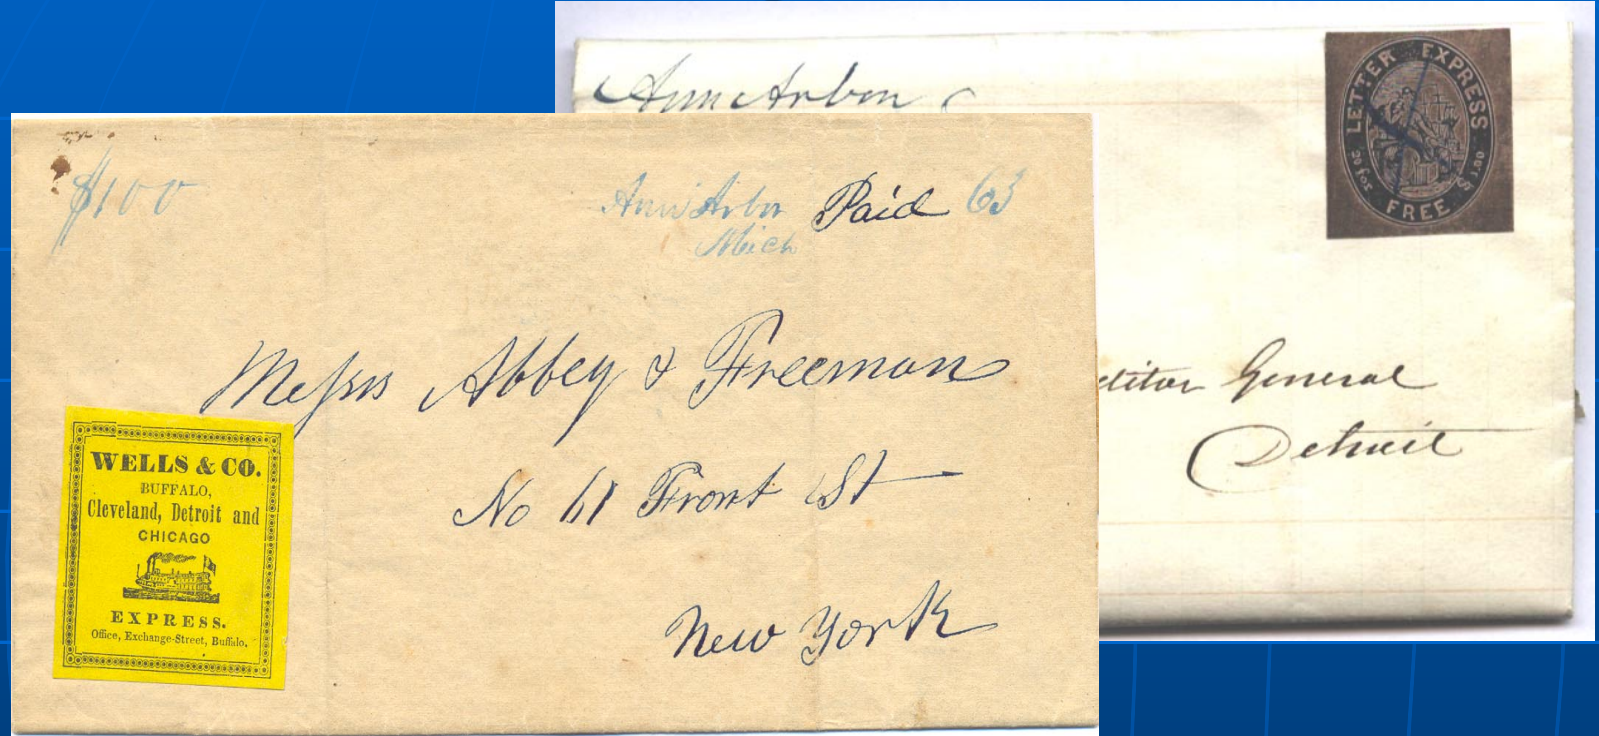 Ann Arbor
LETTER EXPRESS
20 for $1.00
FREE
ditor General
Detroit
$100
Ann Arbor Paid 63
Mich
Messrs Abbey & Freeman
No 61 Front St
New York
WELLS & CO.
BUFFALO,
Cleveland, Detroit and
CHICAGO
EXPRESS.
Office, Exchange-Street, Buffalo.